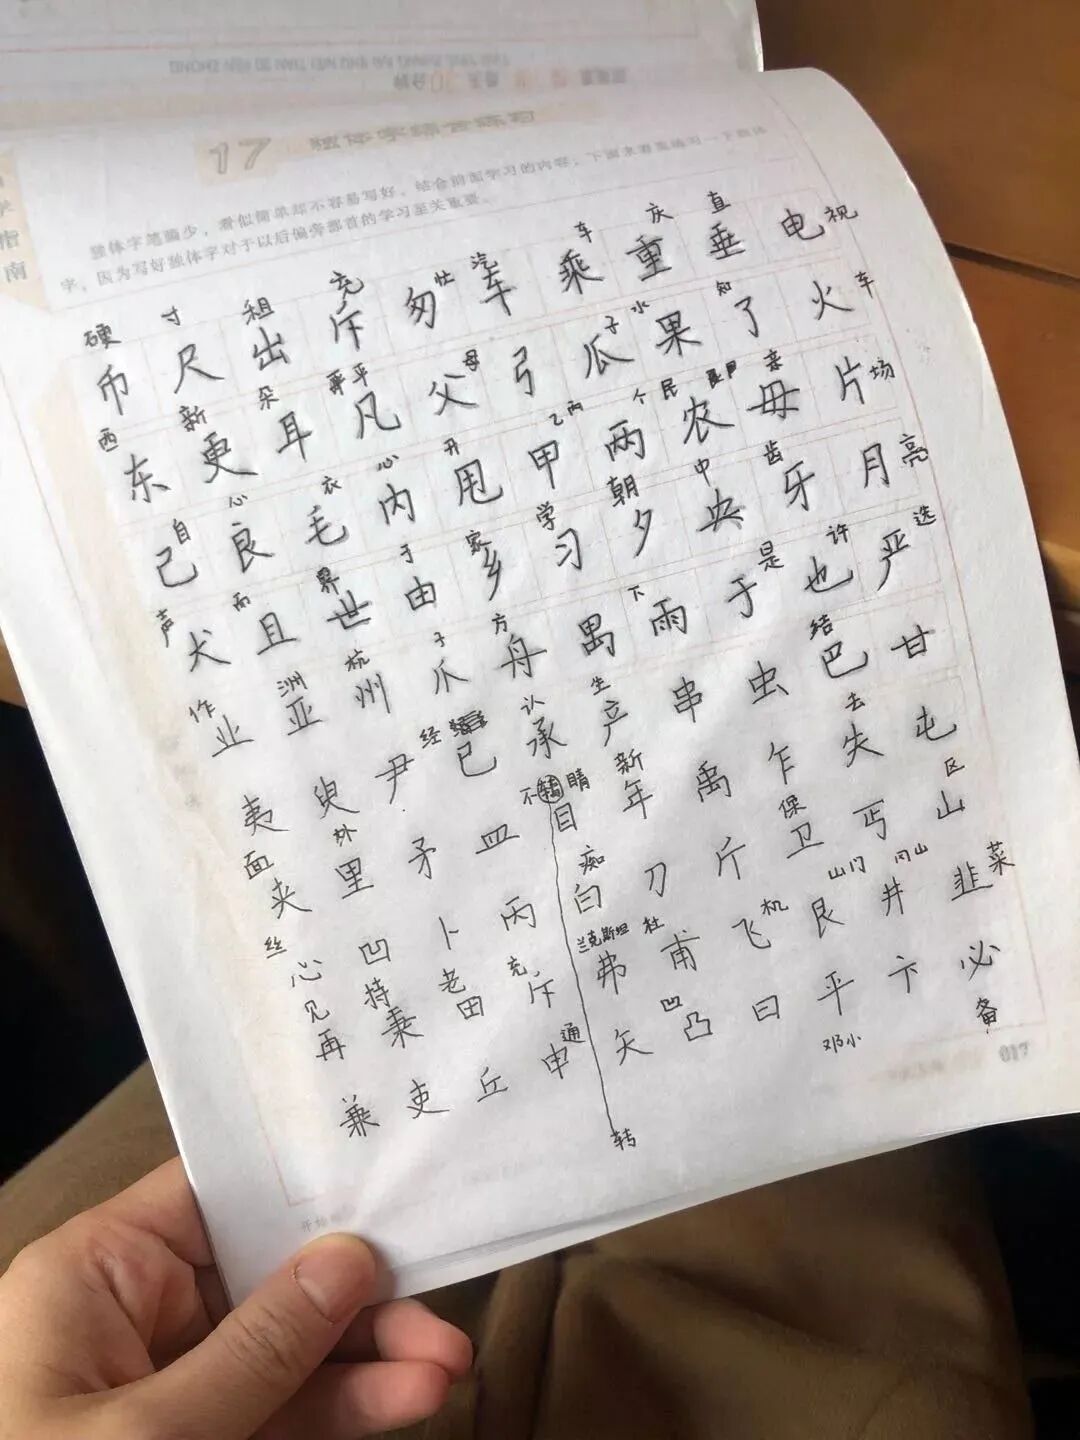 17 独体字综合练习
独体字笔画少，看似简单却不容易写好，结合前面学习的内容，下面来着重练习一下独体
字，因为写好独体字对于以后偏旁部首的学习至关重要。
硬 寸 租 充 忙 汽 车 庆 直 视
币 尺 出 斥 匆 车 乘 重 垂 电
西 新 朵 平 母 子 水 知 车
东 更 耳 凡 父 弓 瓜 果 了 火
自 心 衣 心 开 乙 两 个 民 亲 场
己 良 毛 内 甩 甲 两 农 毋 片
声 而 界 于 家 学 朝 中 齿 亮
犬 且 世 由 乡 习 夕 央 牙 月
作 洲 杭 子 方 下 是 许 选
业 亚 州 爪 舟 禺 雨 于 也 严
经 认 生 结
夷 臾 尹 已 承 产 串 虫 巴 甘
面 外 不 睛 新 保 去 区
夹 里 矛 皿 目 年 禹 乍 失 屯
丝 痴 山门 冈山 菜
心 凹 卜 丙 白 刀 斤 卫 丐 山
见 持 老 充 兰克斯坦 杜 机
再 秉 田 斥 弗 甫 飞 艮 井 韭
通 凹 邓小 备
兼 吏 丘 申 矢 凸 曰 平 卞 必
转
017